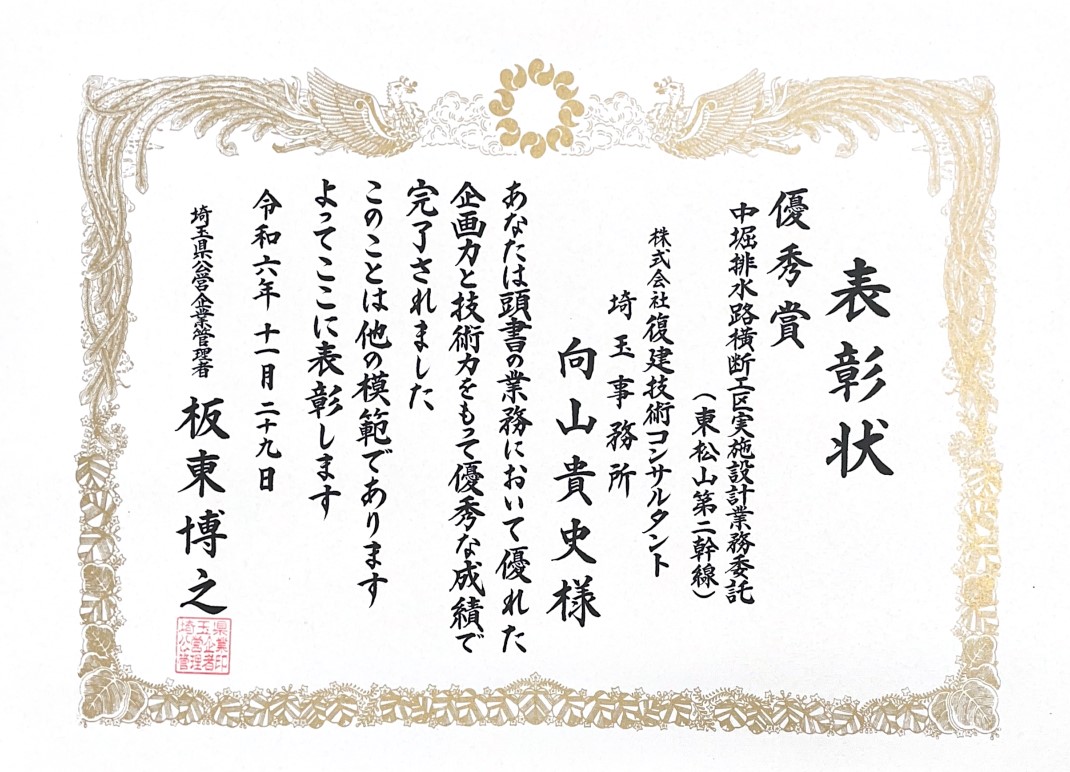 表彰状
優秀賞
中堀排水路横断工区実施設計業務委託
（東松山第二幹線）
株式会社復建技術コンサルタント
埼玉事務所
向山貴史様
あなたは頭書の業務において優れた
企画力と技術力をもって優秀な成績で
完了されました
このことは他の模範であります
よってここに表彰します
令和六年十一月二十九日
埼玉県公営企業管理者
板東博之
埼玉県
公営企業
管理者印